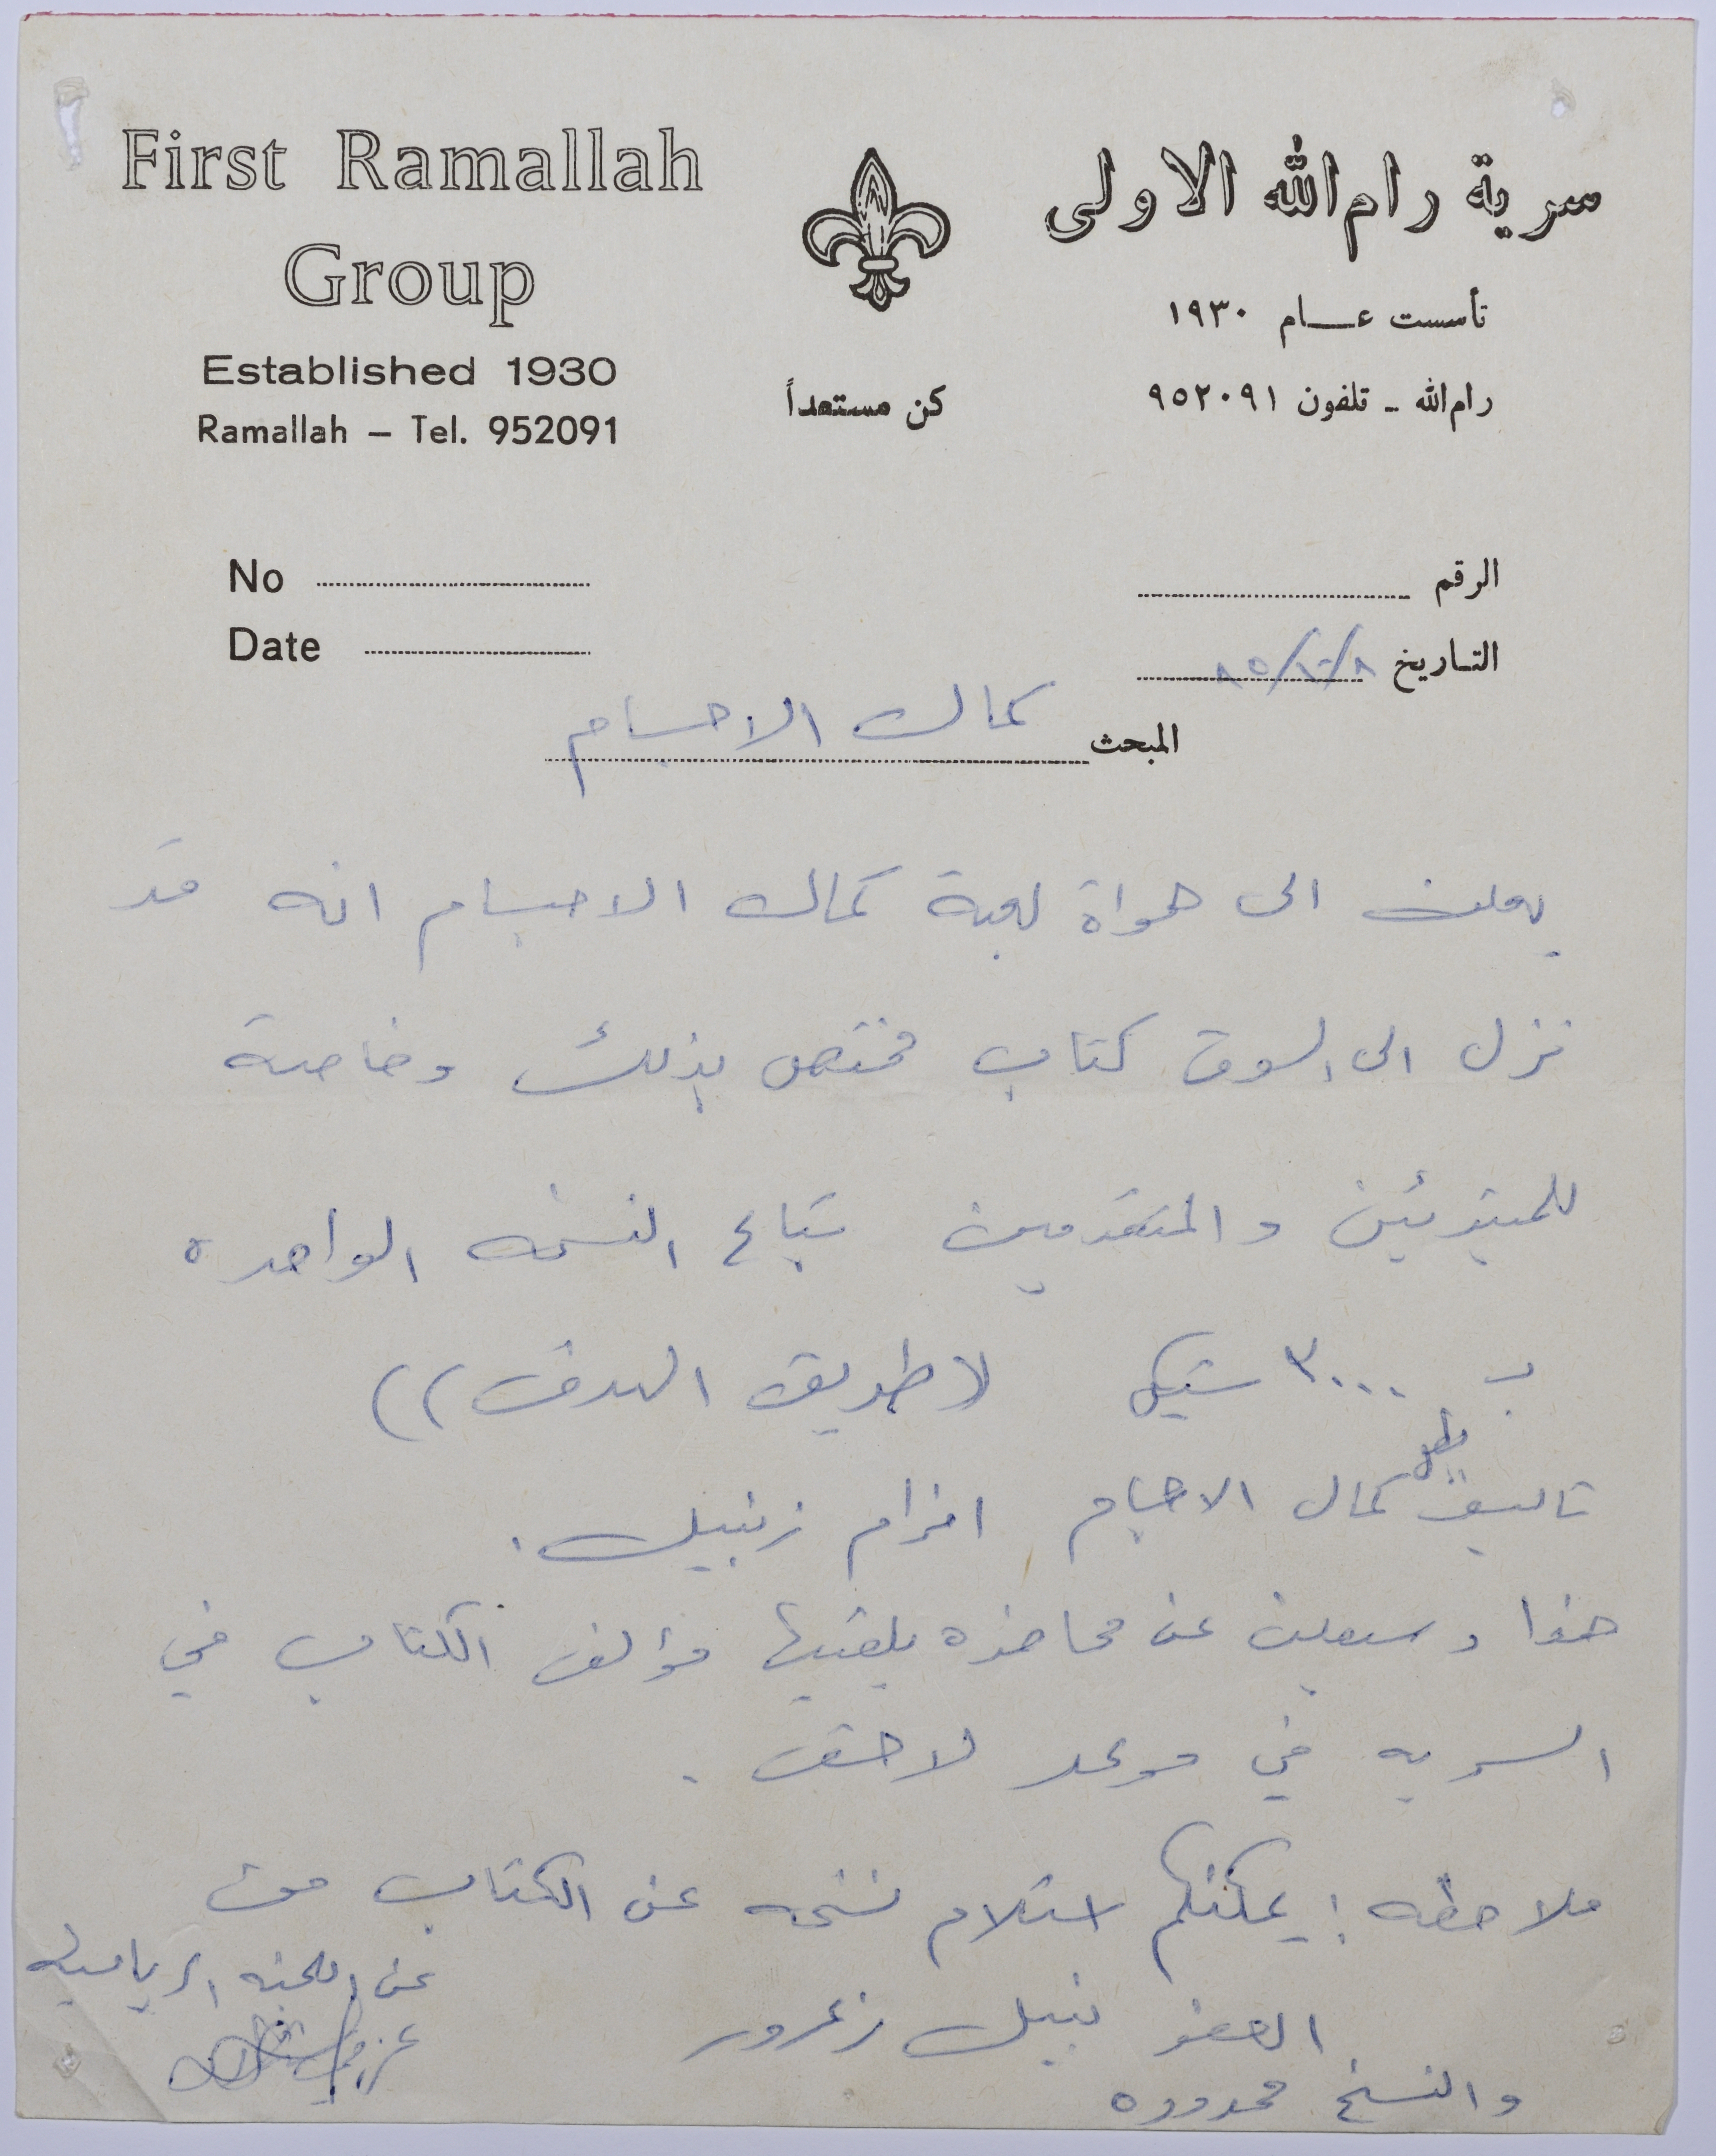 First Ramallah
Group
Established 1930
Ramallah – Tel. 952091
سرية رام الله الاولى
تأسست عــام ١٩٣٠
رام الله ـ تلفون ٩٥٢٠٩١
كن مستعداً
No
Date
الرقم
التاريخ ٨/١٠/٨٥
المبحث كمال الاجسام
يعلن الى هواة لعبة كمال الاجسام انه قد
نزل الى السوق كتاب مختص بذلك وخاصة
للمبتدئين والمتقدمين تباع النسخه الواحده
ب ٣٠٠٠ شيكل (طريق الهدف))
بطل
تاليف كمال الاجسام افرام زنبيل.
هذا وسيعلن عن محاضره يلقيها مؤلف الكتاب في
السريه في موعد لاحق.
ملاحظه: يمكنكم استلام نسخه عن الكتاب من
العضو نبيل زعرور
والنسخ محدوده
عن اللجنه الرياضيه